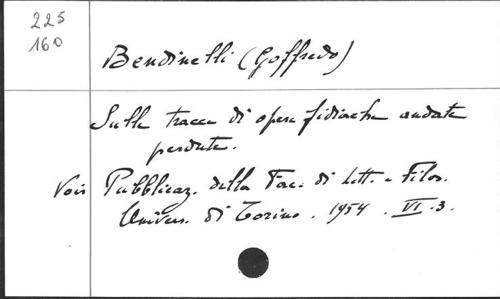 225
160
Bendinelli (Goffredo)
Sulle tracce di opere fidiache andate
perdute.
Voir Pubblicaz. della Fac. di Lett. e Filos.
Univers. di Torino. 1954. VI. 3.